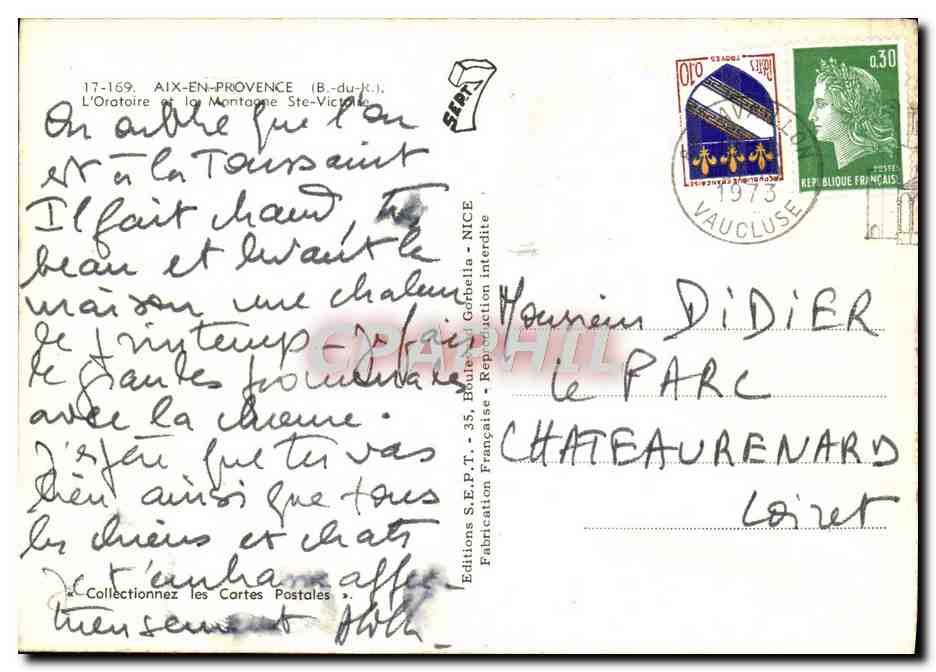 17-169. AIX-EN-PROVENCE (B.-du-R.).
L'Oratoire et la Montagne Ste-Victoire
On oublie que l'on
est à la Toussaint
Il fait chaud, très
beau et devant la
maison une chaleur
de printemps - je fais
de grandes promenades
avec la chienne.
J'espère que tu vas
bien ainsi que tous
les chiens et chats
Je t'embrasse affec-
tueusement
« Collectionnez les Cartes Postales ».
SEPT
Editions S.E.P.T. - 35, Boulevard Gorbella - NICE
Fabrication Française - Reproduction interdite
CPAPHIL
0,10
TROYES
POSTES
REPUBLIQUE FRANÇAISE
0,30
POSTES
REPUBLIQUE FRANÇAISE
CAVAILLON
1973
VAUCLUSE
Monsieur DiDiER
le PARC
CHATEAURENARD
Loiret